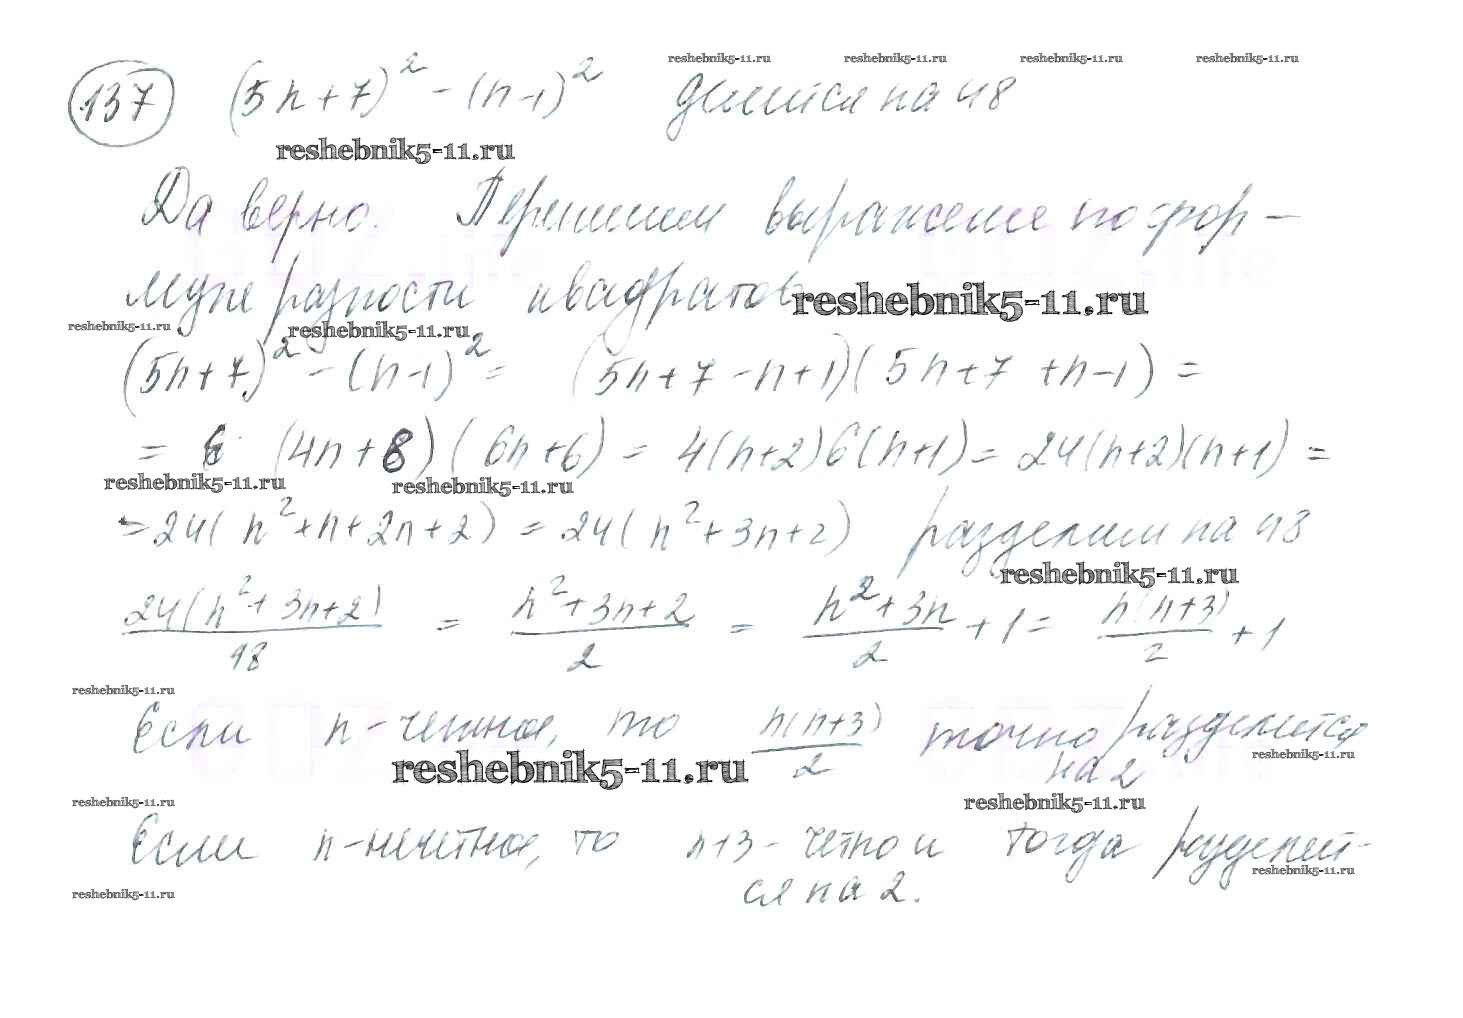 reshebnik5-11.ru reshebnik5-11.ru reshebnik5-11.ru reshebnik5-11.ru
137 (5n+7)² - (n-1)² делится на 48
reshebnik5-11.ru
Да верно. Перепишем выражение по фор-
муле разности квадратов
reshebnik5-11.ru
reshebnik5-11.ru reshebnik5-11.ru
(5n+7)² - (n-1)² = (5n+7-n+1)(5n+7+n-1) =
= (4n+8)(6n+6) = 4(n+2)6(n+1) = 24(n+2)(n+1) =
reshebnik5-11.ru reshebnik5-11.ru
= 24(n²+n+2n+2) = 24(n²+3n+2) разделим на 48
reshebnik5-11.ru
24(n²+3n+2)/48 = n²+3n+2/2 = n²+3n/2 + 1 = n(n+3)/2 + 1
reshebnik5-11.ru
Если n-четное, то n(n+3)/2 точно разделится
на 2
reshebnik5-11.ru reshebnik5-11.ru
reshebnik5-11.ru reshebnik5-11.ru
Если n-нечетное, то n+3 - четно и тогда разделит-
reshebnik5-11.ru
ся на 2.
reshebnik5-11.ru